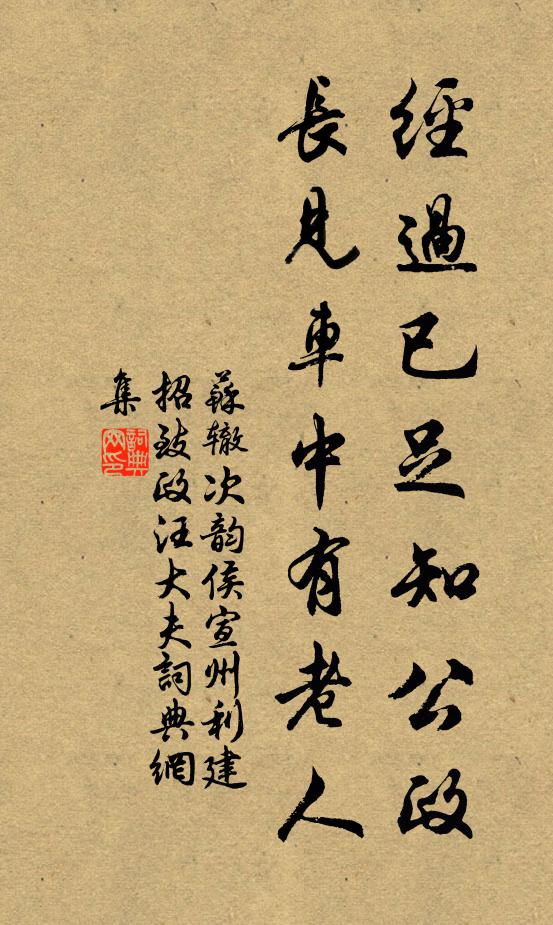 經過已足知公政
長見車中有老人
蘇辙次韵侯宣州利建
招致政汪大夫詞典網
集
詞典網印